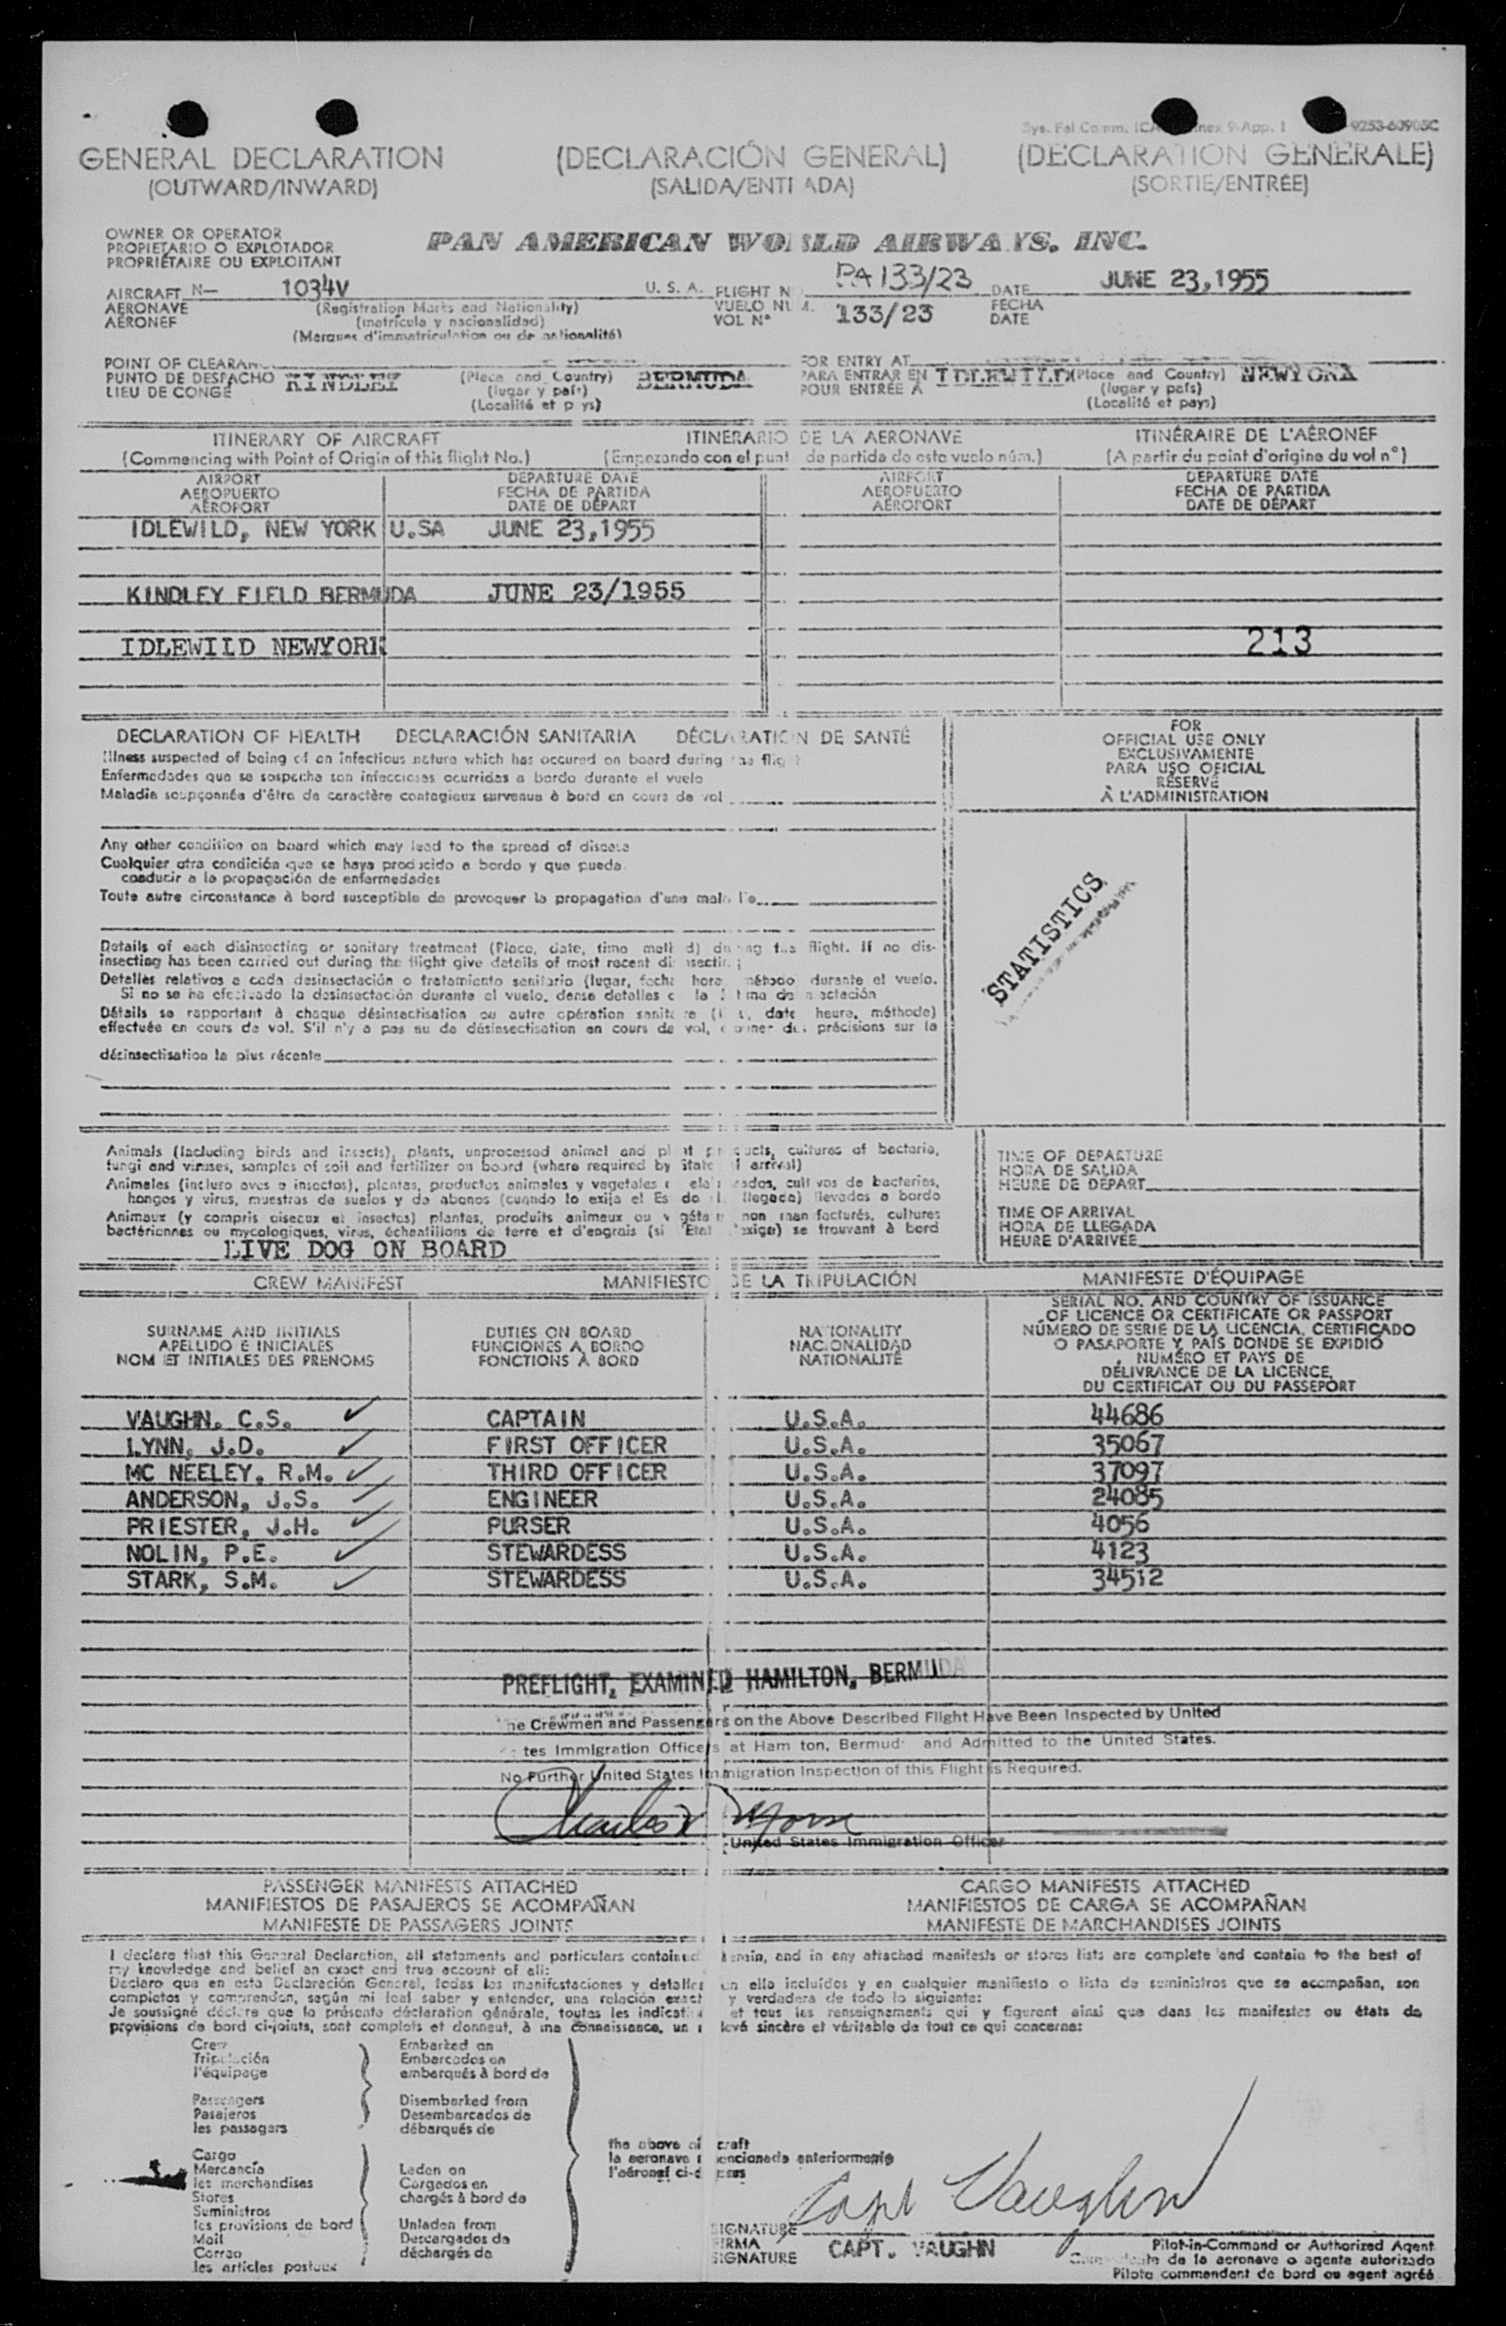 Sys. Fal Comm. Annex 9 App. 1 9253-60905C
GENERAL DECLARATION (DECLARACIÓN GENERAL) (DECLARATION GENERALE)
(OUTWARD/INWARD) (SALIDA/ENTRADA) (SORTIE/ENTRÉE)
OWNER OR OPERATOR
PROPIETARIO O EXPLOTADOR PAN AMERICAN WORLD AIRWAYS, INC.
PROPRIÉTAIRE OU EXPLOITANT
AIRCRAFT N— 1034V U. S. A. FLIGHT N PA 133/23 DATE JUNE 23,1955
AERONAVE (Registration Marks and Nationality) VUELO NUM. 133/23 FECHA
AÉRONEF (matrícula y nacionalidad) VOL Nº DATE
(Marques d'immatriculation ou de nationalité)
POINT OF CLEARAN FOR ENTRY AT
PUNTO DE DESPACHO KINDLEY (Place and Country) BERMUDA PARA ENTRAR EN IDLEWILD (Place and Country) NEWYORK
LIEU DE CONGÉ (lugar y país) POUR ENTRÉE À (lugar y país)
(Localité et pays) (Localité et pays)
ITINERARY OF AIRCRAFT ITINERARIO DE LA AERONAVE ITINÉRAIRE DE L'AÉRONEF
(Commencing with Point of Origin of this flight No.) (Empezando con el punt de partida de este vuelo núm.) (A partir du point d'origine du vol nº)
AIRPORT DEPARTURE DATE AIRPORT DEPARTURE DATE
AEROPUERTO FECHA DE PARTIDA AEROPUERTO FECHA DE PARTIDA
AÉROPORT DATE DE DÉPART AÉROPORT DATE DE DÉPART
IDLEWILD, NEW YORK U.SA JUNE 23,1955
KINDLEY FIELD BERMUDA JUNE 23/1955
IDLEWILD NEWYORK 213
DECLARATION OF HEALTH DECLARACIÓN SANITARIA DÉCLARATION DE SANTÉ
Illness suspected of being of an infectious nature which has occured on board during the flight
Enfermedades que se sospecha son infecciosas ocurridas a bordo durante el vuelo
Maladie soupçonnée d'être de caractère contagieux survenue à bord en cours de vol
FOR
OFFICIAL USE ONLY
EXCLUSIVAMENTE
PARA USO OFICIAL
RÉSERVÉ
À L'ADMINISTRATION
Any other condition on board which may lead to the spread of disease
Cualquier otra condición que se haya producido a bordo y que pueda
conducir a la propagación de enfermedades
Toute autre circonstance à bord susceptible de provoquer la propagation d'une maladie
STATISTICS
Details of each disinsecting or sanitary treatment (Place, date, time method) during the flight. If no dis-
insecting has been carried out during the flight give details of most recent disinsecting
Detalles relativos a cada desinsectación o tratamiento sanitario (lugar, fecha hora método durante el vuelo.
Si no se ha efectuado la desinsectación durante el vuelo, dense detalles
Détails se rapportant à chaque désinsectisation ou autre opération sanitaire date heure, méthode)
effectuée en cours de vol. S'il n'y a pas eu de désinsectisation en cours de vol, donner des précisions sur la
désinsectisation la plus récente
Animals (including birds and insects), plants, unprocessed animal and plant products, cultures of bacteria,
fungi and viruses, samples of soil and fertilizer on board (where required by State of arrival)
Animales (incluso aves e insectos), plantas, productos animales y vegetales cultivos de bacterias,
hongos y virus, muestras de suelos y de abonos (cuando lo exija el Es do llegada) llevados a bordo
Animaux (y compris oiseaux et insectes) plantes, produits animaux ou végéta non manufacturés, cultures
bactériennes ou mycologiques, virus, échantillons de terre et d'engrais (si l'Etat l'exige) se trouvant à bord
LIVE DOG ON BOARD
TIME OF DEPARTURE
HORA DE SALIDA
HEURE DE DÉPART
TIME OF ARRIVAL
HORA DE LLEGADA
HEURE D'ARRIVÉE
CREW MANIFEST MANIFIESTO DE LA TRIPULACIÓN MANIFESTE D'ÉQUIPAGE
SURNAME AND INITIALS
APELLIDO E INICIALES
NOM ET INITIALES DES PRENOMS
DUTIES ON BOARD
FUNCIONES A BORDO
FONCTIONS À BORD
NATIONALITY
NACIONALIDAD
NATIONALITÉ
SERIAL NO. AND COUNTRY OF ISSUANCE
OF LICENCE OR CERTIFICATE OR PASSPORT
NÚMERO DE SERIE DE LA LICENCIA, CERTIFICADO
O PASAPORTE Y PAÍS DONDE SE EXPIDIÓ
NUMÉRO ET PAYS DE
DÉLIVRANCE DE LA LICENCE,
DU CERTIFICAT OU DU PASSEPORT
VAUGHN. C.S. CAPTAIN U.S.A. 44686
LYNN, J.D. FIRST OFFICER U.S.A. 35067
MC NEELEY, R.M. THIRD OFFICER U.S.A. 37097
ANDERSON, J.S. ENGINEER U.S.A. 24085
PRIESTER, J.H. PURSER U.S.A. 4056
NOLIN, P.E. STEWARDESS U.S.A. 4123
STARK, S.M. STEWARDESS U.S.A. 34512
PREFLIGHT, EXAMINED HAMILTON, BERMUDA
The Crewmen and Passengers on the Above Described Flight Have Been Inspected by United
tes Immigration Officers at Ham ton, Bermud and Admitted to the United States.
No Further United States Immigration Inspection of this Flight is Required.
United States Immigration Officer
PASSENGER MANIFESTS ATTACHED CARGO MANIFESTS ATTACHED
MANIFIESTOS DE PASAJEROS SE ACOMPAÑAN MANIFIESTOS DE CARGA SE ACOMPAÑAN
MANIFESTE DE PASSAGERS JOINTS MANIFESTE DE MARCHANDISES JOINTS
I declare that this General Declaration, all statements and particulars contained herein, and in any attached manifests or stores lists are complete and contain to the best of
my knowledge and belief an exact and true account of all:
Declaro que en esta Declaración General, todas las manifestaciones y detalles en ella incluídos y en cualquier manifiesto o lista de suministros que se acompañan, son
completos y comprenden, según mi leal saber y entender, una relación exact y verdadera de todo lo siguiente:
Je soussigné déclare que la présente déclaration générale, toutes les indicat et tous les renseignements qui y figurent ainsi que dans les manifestes ou états de
provisions de bord ci-joints, sont complets et donnent, à ma connaissance, un relevé sincère et véritable de tout ce qui concerne:
Crew Embarked on
Tripulación Embarcados en
l'équipage embarqués à bord de
Passengers Disembarked from
Pasajeros Desembarcados de
les passagers débarqués de
the above aircraft
la aeronave mencionada anteriormente
l'aéronef ci-dessus
Cargo
Mercancía Laden on
les marchandises Cargados en
Stores chargés à bord de
Suministros
les provisions de bord Unladen from
Mail Descargados de
Correo déchargés de
les articles postaux
Capt Vaughn
SIGNATURE
FIRMA CAPT. VAUGHN Pilot-in-Command or Authorized Agent
SIGNATURE Comandante de la aeronave o agente autorizado
Pilote commandant de bord ou agent agréé